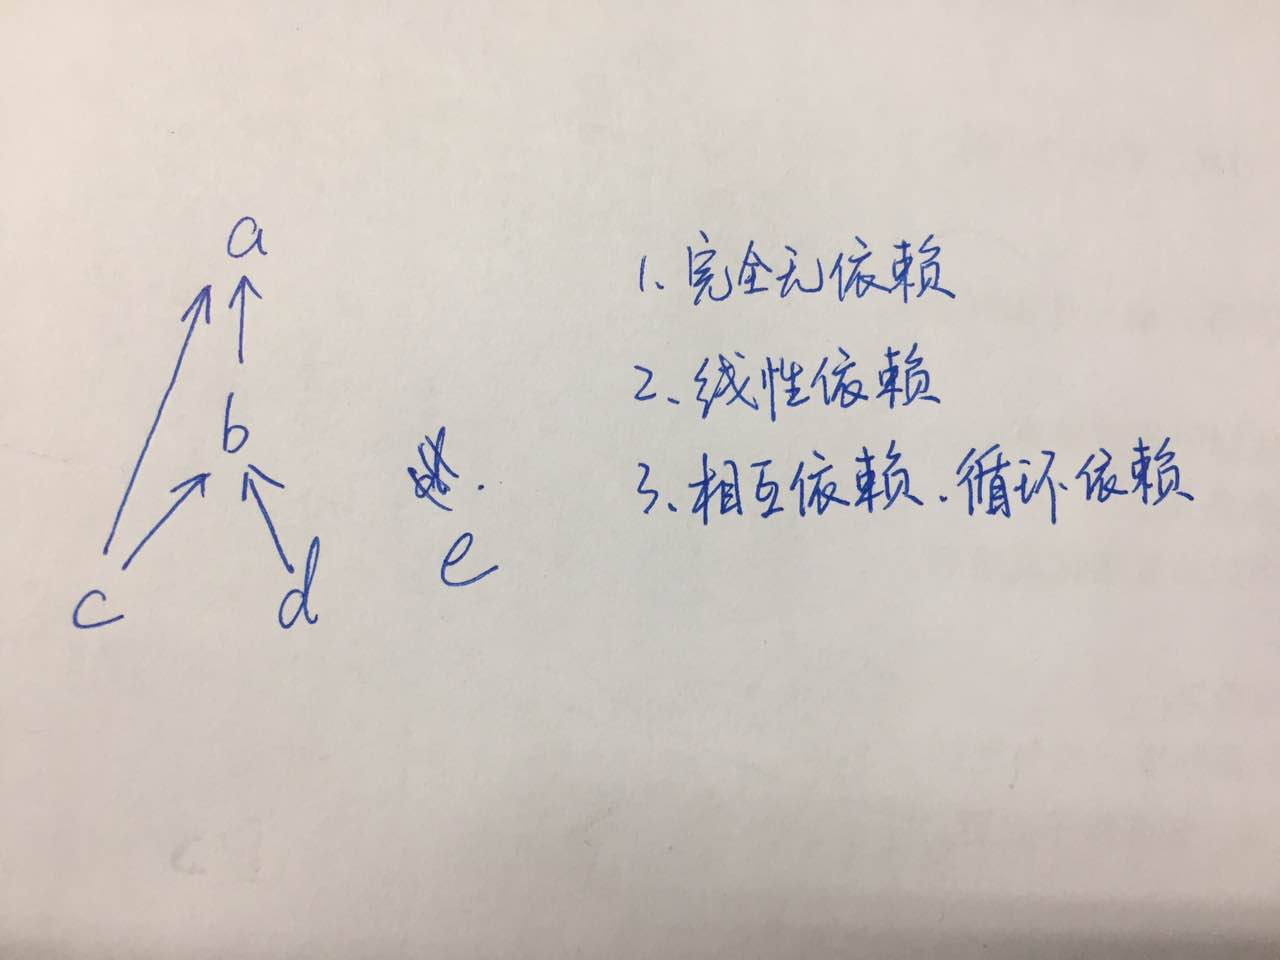 a
b
c
d
e
1、完全无依赖
2、线性依赖
3、相互依赖、循环依赖